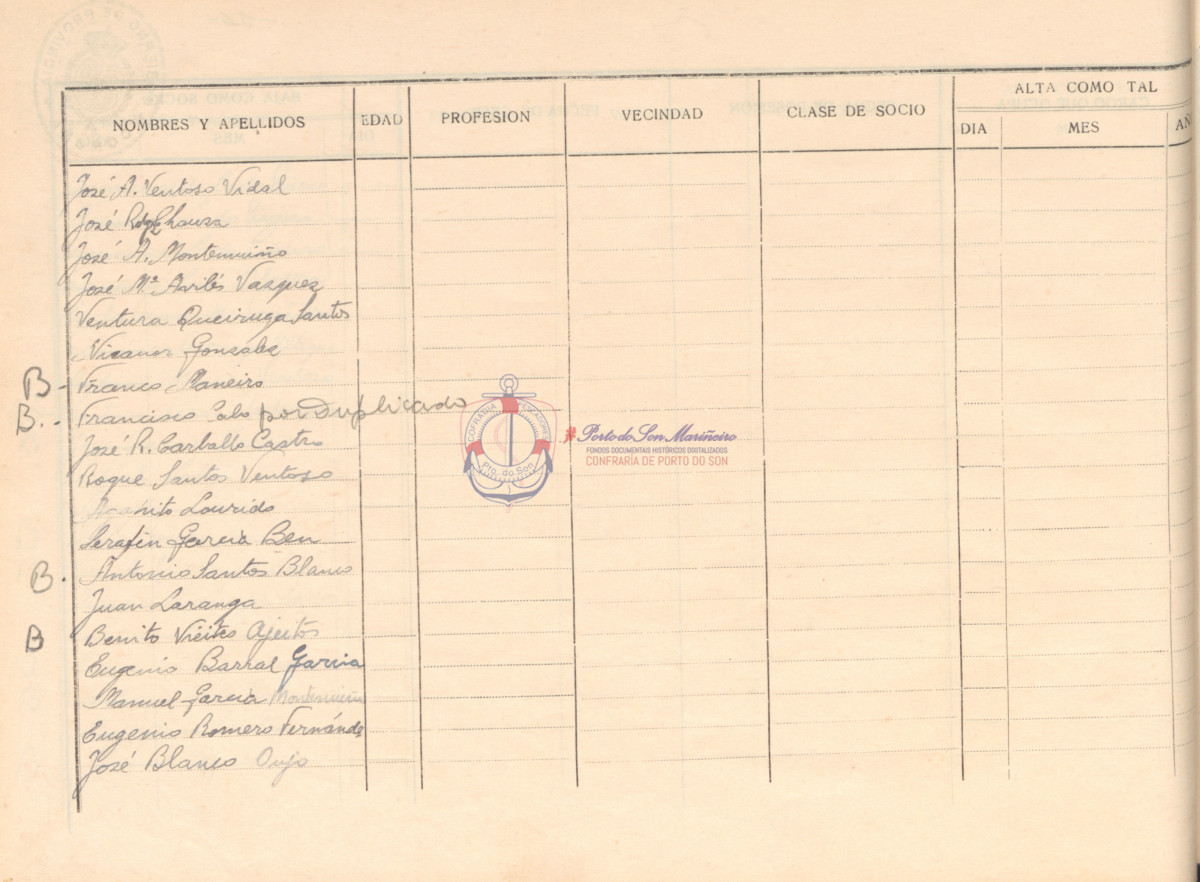 NOMBRES Y APELLIDOS EDAD PROFESION VECINDAD CLASE DE SOCIO ALTA COMO TAL
DIA MES AÑ
José A. Ventoso Vidal
José
José A. Montemuiño
José Mª Avilés Vazquez
Ventura Queiruga Santos
Nicanor González
B - Franco Maneiro
B. - Francisco Calo por Duplicado
José R. Carballo Castro
Roque Santos Ventoso
Agapito Lourido
Serafin García Ben
B. Antonio Santos Blanco
Juan Laranga
B Benito Vieites Ageitos
Eugenio Barral Garcia
Manuel García Montemuiño
Eugenio Romero Fernánde
José Blanco Oujo
COFRADIA PESCADORES
Pto. do Son
Porto do Son Mariñeiro
FONDOS DOCUMENTAIS HISTÓRICOS DIXITALIZADOS
CONFRARÍA DE PORTO DO SON